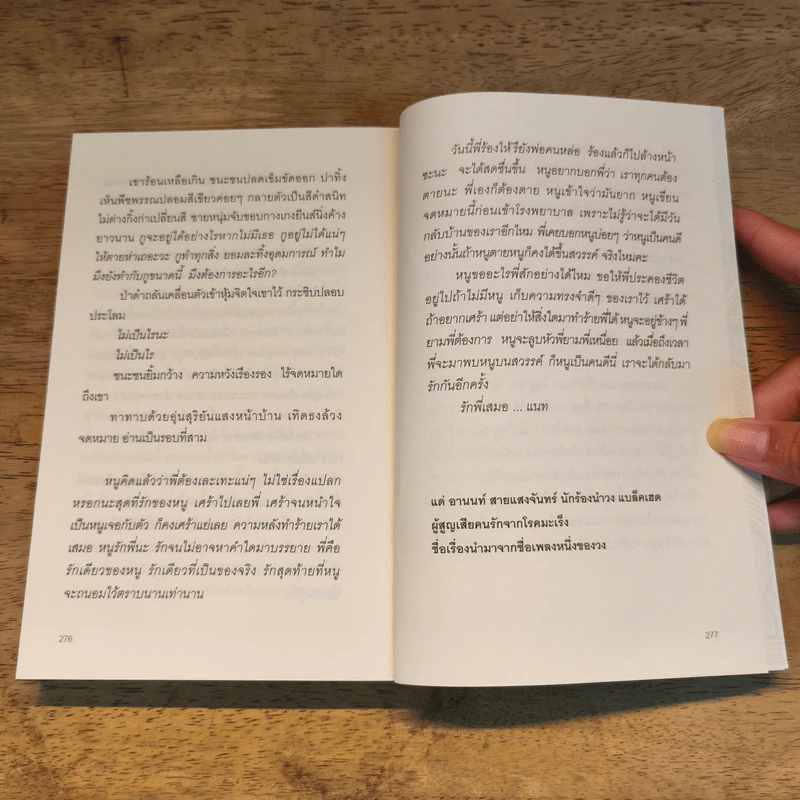 เขาร้อนเหลือเกิน ชนะชนปลดเข็มขัดออก ปาทิ้ง
เห็นพืชพรรณปลอมสีเขียวค่อยๆ กลายตัวเป็นสีดำสนิท
ไม่ต่างกิ้งก่าเปลี่ยนสี ชายหนุ่มจับขอบกางเกงยีนส์นิ่งค้าง
ยาวนาน กูจะอยู่ได้อย่างไรหากไม่มีเธอ กูอยู่ไม่ได้แน่ๆ
ให้ตายห่าเถอะวะ กูทำทุกสิ่ง ยอมละทิ้งอุดมการณ์ ทำไม
มึงยังทำกับกูขนาดนี้ มึงต้องการอะไรอีก?
ป่าดำถลันเคลื่อนตัวเข้าหุ้มจิตใจเขาไว้ กระซิบปลอบ
ประโลม
ไม่เป็นไรนะ
ไม่เป็นไร
ชนะชนยิ้มกว้าง ความหวังเรืองรอง ไร้จดหมายใด
ถึงเขา
ทาทาบด้วยอุ่นสุริยันแสงหน้าบ้าน เทิดธงล้วง
จดหมาย อ่านเป็นรอบที่สาม
หนูคิดแล้วว่าพี่ต้องเละเทะแน่ๆ ไม่ใช่เรื่องแปลก
หรอกนะสุดที่รักของหนู เศร้าไปเลยพี่ เศร้าจนหนำใจ
เป็นหนูเจอกับตัว ก็คงเศร้าแย่เลย ความหลังทำร้ายเราได้
เสมอ หนูรักพี่นะ รักจนไม่อาจหาคำใดมาบรรยาย พี่คือ
รักเดียวของหนู รักเดียวที่เป็นของจริง รักสุดท้ายที่หนู
จะถนอมไว้ตราบนานเท่านาน
276
วันนี้พี่ร้องไห้รึยังพ่อคนหล่อ ร้องแล้วก็ไปล้างหน้า
ซะนะ จะได้สดชื่นขึ้น หนูอยากบอกพี่ว่า เราทุกคนต้อง
ตายนะ พี่เองก็ต้องตาย หนูเข้าใจว่ามันยาก หนูเขียน
จดหมายนี้ก่อนเข้าโรงพยาบาล เพราะไม่รู้ว่าจะได้มีวัน
กลับบ้านของเราอีกไหม พี่เคยบอกหนูบ่อยๆ ว่าหนูเป็นคนดี
อย่างนั้นถ้าหนูตายหนูก็คงได้ขึ้นสวรรค์ จริงไหมคะ
หนูขออะไรพี่สักอย่างได้ไหม ขอให้พี่ประคองชีวิต
อยู่ไปถ้าไม่มีหนู เก็บความทรงจำดีๆ ของเราไว้ เศร้าได้
ถ้าอยากเศร้า แต่อย่าให้สิ่งใดมาทำร้ายพี่ได้ หนูจะอยู่ข้างๆ พี่
ยามพี่ต้องการ หนูจะลูบหัวพี่ยามพี่เหนื่อย แล้วเมื่อถึงเวลา
พี่จะมาพบหนูบนสวรรค์ ก็หนูเป็นคนดีนี่ เราจะได้กลับมา
รักกันอีกครั้ง
รักพี่เสมอ ... แนท
แด่ อานนท์ สายแสงจันทร์ นักร้องนำวง แบล็คเฮด
ผู้สูญเสียคนรักจากโรคมะเร็ง
ชื่อเรื่องนำมาจากชื่อเพลงหนึ่งของวง
277